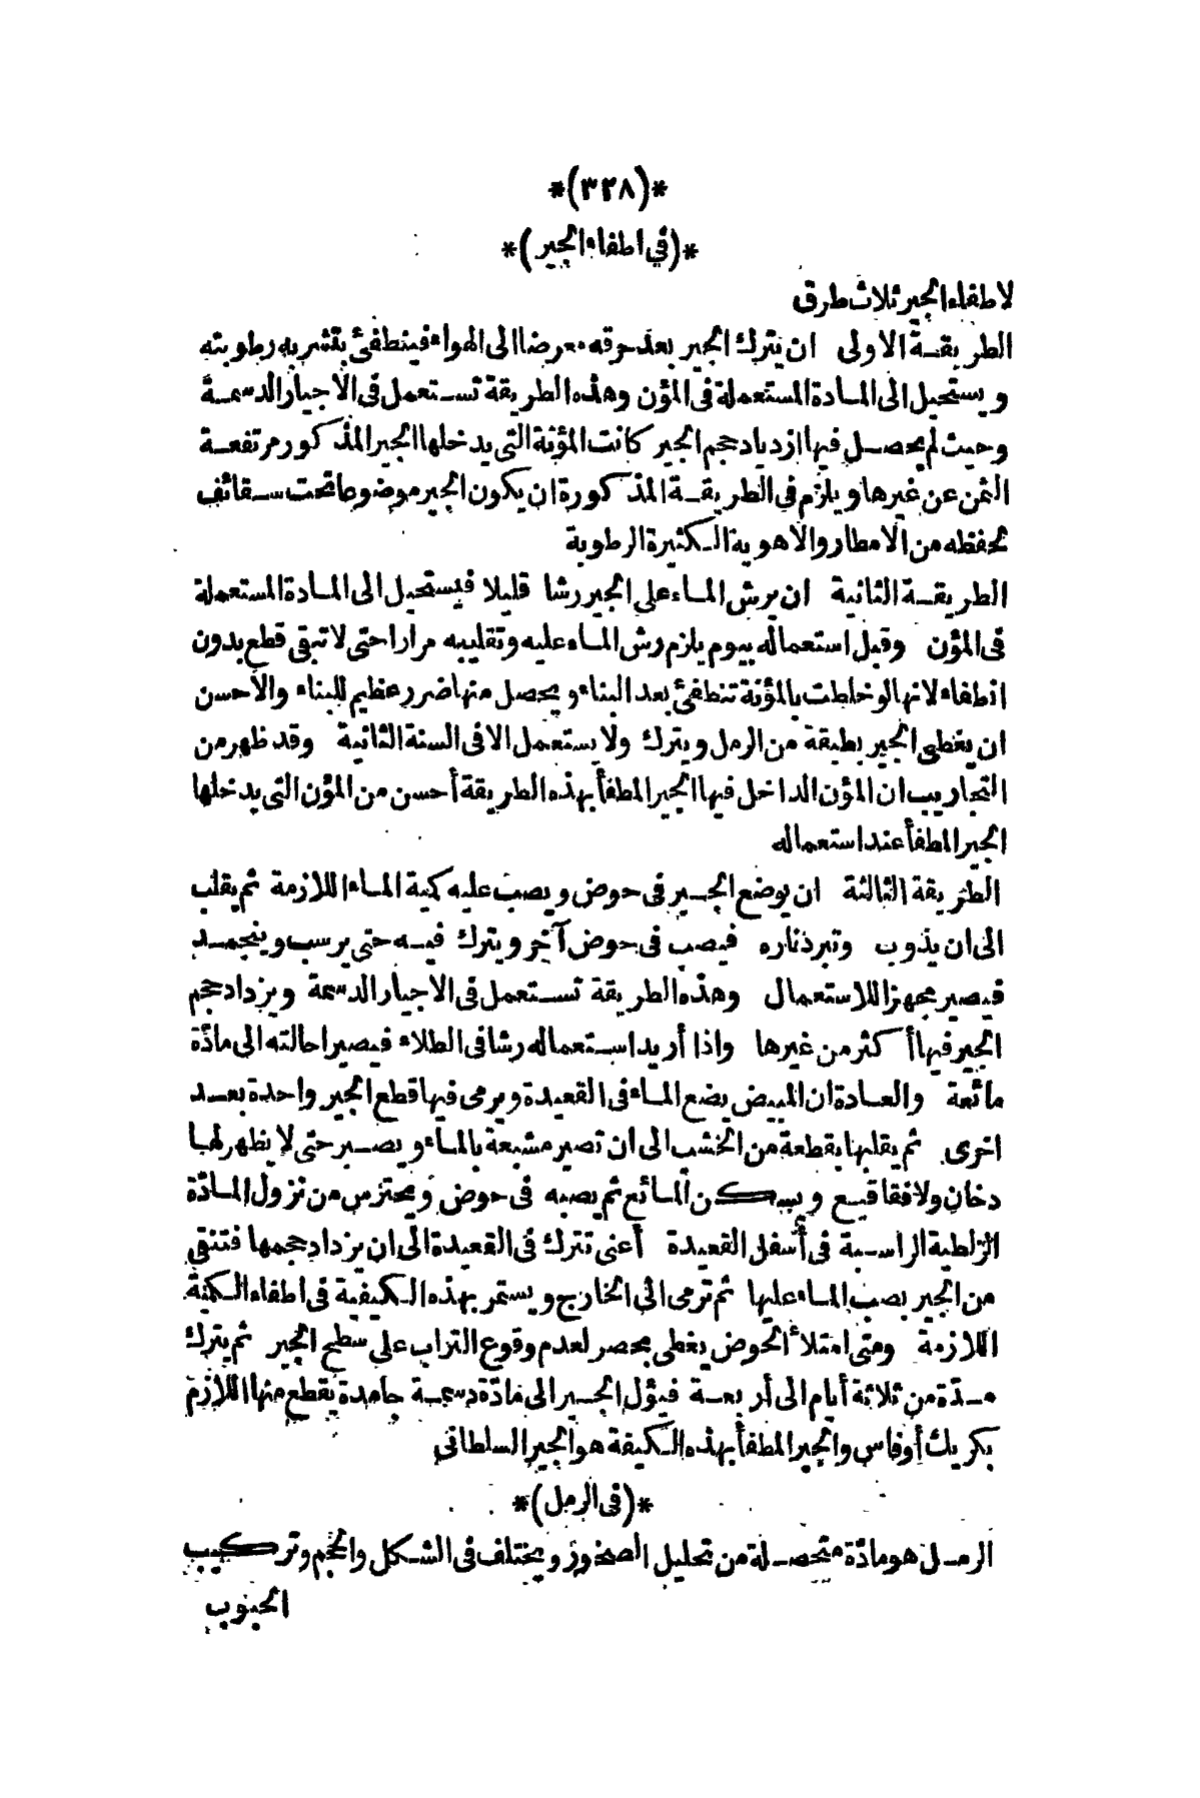 *(٣٢٨)*
*(في اطفاء الجير)*
لاطفاء الجير ثلاث طرق
الطريقة الاولى ان يترك الجير بعد حرقه معرضا الى الهواء فينطفئ بتشربه رطوبته
ويستحيل الى المادة المستعملة فى المؤن وهذه الطريقة تستعمل فى الاجيار الدسمة
وحيث لم يحصل فيها ازدياد حجم الجير كانت المؤنة التى يدخلها الجير المذكور مرتفعة
الثمن عن غيرها ويلزم فى الطريقة المذكورة ان يكون الجير موضوعا تحت سقائف
تحفظه من الامطار والاهوية الكثيرة الرطوبة
الطريقة الثانية ان يرش الماء على الجير رشا قليلا فيستحيل الى المادة المستعملة
فى المؤن وقبل استعماله بيوم يلزم رش الماء عليه وتقليبه مرارا حتى لا تبقى قطع بدون
انطفاء لانها لو خلطت بالمؤنة تنطفئ بعد البناء ويحصل منها ضرر عظيم للبناء والاحسن
ان يغطى الجير بطبقة من الرمل ويترك ولا يستعمل الا فى السنة الثانية وقد ظهر من
التجاريب ان المؤن الداخل فيها الجير المطفأ بهذه الطريقة أحسن من المؤن التى يدخلها
الجير المطفأ عند استعماله
الطريقة الثالثة ان يوضع الجير فى حوض ويصب عليه كمية الماء اللازمة ثم يقلب
الى ان يذوب وتبرد ناره فيصب فى حوض آخر ويترك فيه حتى يرسب وينجمد
فيصير مجهزا للاستعمال وهذه الطريقة تستعمل فى الاجيار الدسمة ويزداد حجم
الجير فيها أكثر من غيرها واذا أريد استعماله رشا فى الطلاء فيصير احالته الى مادّة
مائعة والعادة ان المبيض يضع الماء فى القعيدة ويرمى فيها قطع الجير واحدة بعد
اخرى ثم يقلبها بقطعة من الخشب الى ان تصير مشبعة بالماء ويصبر حتى لا يظهر لها
دخان ولا فقاقيع ويسكن المائع ثم يصبه فى حوض ويحترس من نزول المادّة
الزلطية الراسبة فى أسفل القعيدة أعنى تترك فى القعيدة الى ان يزداد حجمها فتنقى
من الجير بصب الماء عليها ثم ترمى الى الخارج ويستمر بهذه الكيفية فى اطفاء الكمية
اللازمة ومتى امتلأ الحوض يغطى بحصر لعدم وقوع التراب على سطح الجير ثم يترك
مدّة من ثلاثة أيام الى أربعة فيؤل الجير الى مادّة دسمة جامدة يقطع منها اللازم
بكريك أو فاس والجير المطفأ بهذه الكيفية هو الجير السلطانى
*(فى الرمل)*
الرمل هو مادّة متحصلة من تحليل الصخور ويختلف فى الشكل والحجم وتركيب
الحبوب